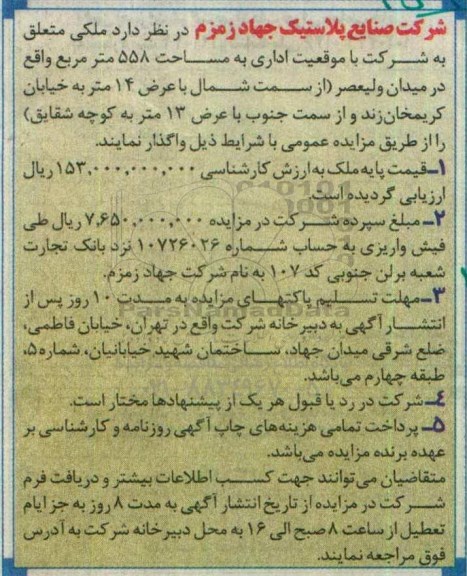 شرکت صنایع پلاستیک جهاد زمزم در نظر دارد ملکی متعلق
به شرکت با موقعیت اداری به مساحت ۵۵۸ متر مربع واقع
در میدان ولیعصر (از سمت شمال با عرض ۱۴ متر به خیابان
کریمخان زند و از سمت جنوب با عرض ۱۳ متر به کوچه شقایق)
را از طریق مزایده عمومی با شرایط ذیل واگذار نمایند.
۱ـ قیمت پایه ملک به ارزش کارشناسی ۱۵۳,۰۰۰,۰۰۰,۰۰۰ ریال
ارزیابی گردیده است.
۲ـ مبلغ سپرده شرکت در مزایده ۷,۶۵۰,۰۰۰,۰۰۰ ریال طی
فیش واریزی به حساب شماره ۱۰۷۲۶۰۲۶ نزد بانک تجارت
شعبه برلن جنوبی کد ۱۰۷ به نام شرکت جهاد زمزم.
۳ـ مهلت تسلیم پاکتهای مزایده به مدت ۱۰ روز پس از
انتشار آگهی به دبیرخانه شرکت واقع در تهران، خیابان فاطمی،
ضلع شرقی میدان جهاد، ساختمان شهید خیابانیان، شماره ۵،
طبقه چهارم می‌باشد.
۴ـ شرکت در رد یا قبول هر یک از پیشنهادها مختار است.
۵ـ پرداخت تمامی هزینه‌های چاپ آگهی روزنامه و کارشناسی بر
عهده برنده مزایده می‌باشد.
متقاضیان می‌توانند جهت کسب اطلاعات بیشتر و دریافت فرم
شرکت در مزایده از تاریخ انتشار آگهی به مدت ۸ روز به جز ایام
تعطیل از ساعت ۸ صبح الی ۱۶ به محل دبیرخانه شرکت به آدرس
فوق مراجعه نمایند.
ParsNamadData